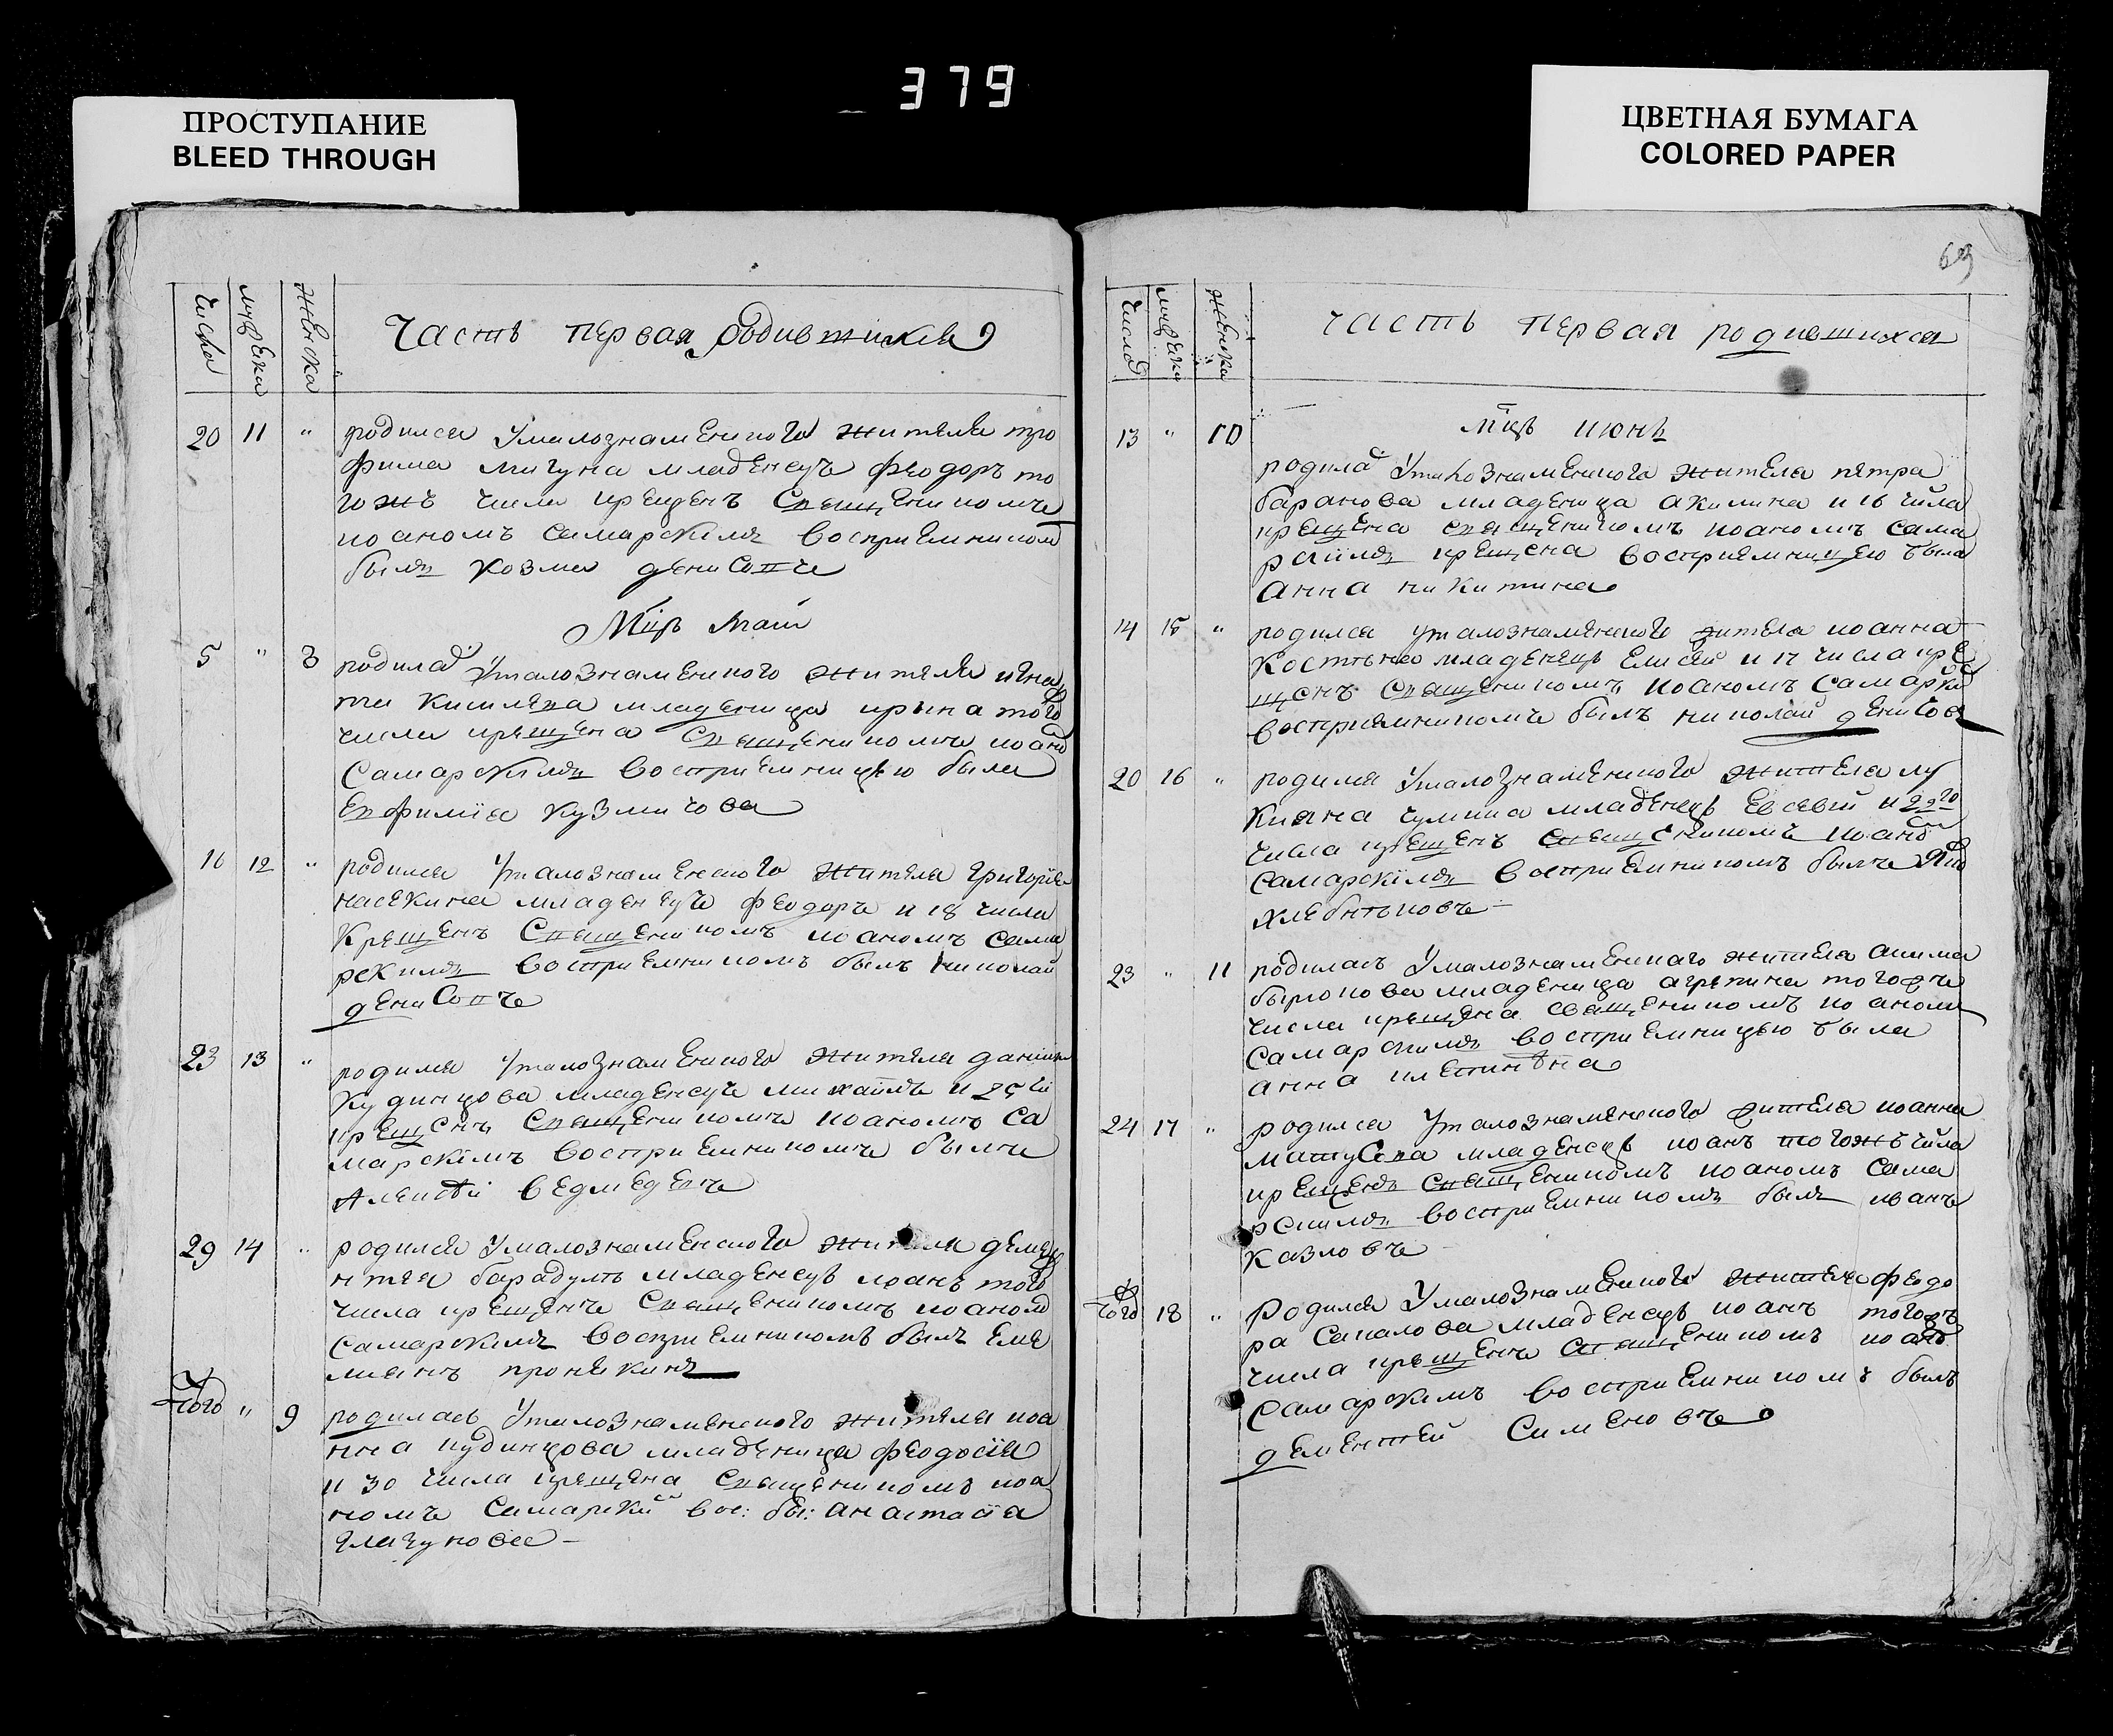 379
ПРОСТУПАНИЕ
BLEED THROUGH
ЦВЕТНАЯ БУМАГА
COLORED PAPER
числа
мужска
женска
Часть первая родившихся
20 11 " родился Умалознаменитого жителя тро
фима мигуна младенецъ феодоръ то
гожъ числа крещенъ Священикомъ
иоаномъ самарскимъ восприемником
былъ козма денисовъ
Мцъ маий
5 " 8 родилас Умалознаменитого жителя игна
тия киселева младеница ирина тогож
числа крещена Священикомъ иоано
Самарскимъ восприемницею была
Евфимия кузмичова
16 12 " родился Умалознаменитого жителя григория
насекина младенецъ феодоръ и 18 числа
Крещенъ Священикомъ иоаномъ сама
рскимъ восприемникомъ былъ николай
денисовъ
23 13 " родился Умалознаменитого жителя данила
кудинцова младенецъ михаилъ и 25 чи
крещенъ Священикомъ иоаномъ са
марскимъ восприемникомъ былъ
Алексѣй ведмедевъ
29 14 " родился Умалознаменитого жителя деме
нтия барадулъ младенецъ иоанъ тогож
числа крещенъ Священикомъ иоаном
самарскимъ восприемникомъ былъ Еме
лианъ пронякинъ
того " 9 родилась Умалознаменитого жителя иоа
нна кудинцова младеница феодосия
и 30 числа крещена Священикомъ иоа
номъ Самарским вос: бы: анастасия
глазунова
69
число
мужска
женска
часть первая родившихся
мцъ июнь
13 " 10 родилас Умалознаменитого жителя петра
баранова младеница акилина и 16 числа
крещена священикомъ иоаномъ сама
рскимъ крещена восприемницею была
анна никитина
14 15 " родился умалознаменитого жителя иоанна
костына младенецъ Елисей и 17 числа кре
щенъ Священикомъ иоаномъ самарски
восприемникомъ былъ николай денисов
20 16 " родился Умалознаменитого жителя лу
кияна чумика младенецъ Евсевий и 22го
числа крещенъ Священикомъ иоано
самарскимъ восприемникомъ былъ
хлебниковъ
23 " 11 родилась Умалознаменитаго жителя
младеница агрепина тогожъ
числа крещена священикомъ иоаномъ
самарскимъ восприемницею была
анна
24 17 " родился Умалознаменитого жителя иоанна
матусева младенецъ иоанъ тогожъ числа
крещенъ Священикомъ иоаномъ сама
рскимъ восприемникомъ былъ иванъ
казловъ
тогож 18 " Родился Умалознаменитого жителя феодо
ра сапалова младенецъ иоанъ тогожъ
числа крещенъ Священикомъ иоано
Самарскимъ восприемникомъ былъ
дементей Сименовъ